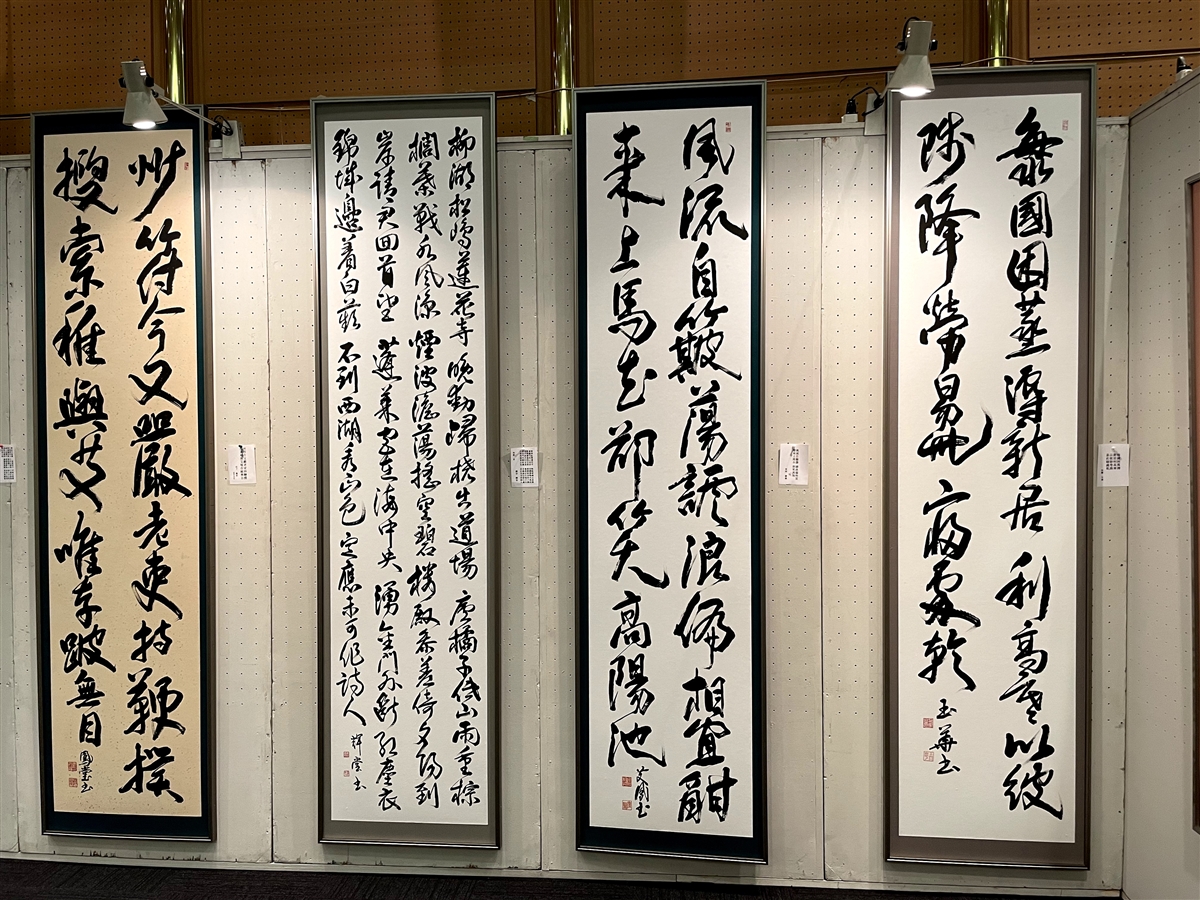 國困蒸溽新居利高寒以彼
陟降勞易此寢處乾
玉華書
風流自簸蕩謔浪偏相宜酣
來上馬去卻笑高陽池
書
柳湖松島蓮花寺晚動歸橈出道場盧橘子低山雨重棕
櫚葉戰水風涼煙波澹蕩搖空碧樓殿參差倚夕陽到
岸請君回首望蓬萊宮在海中央湧金門外斷紅塵衣
錦城邊著白蘋不到西湖看山色定應未可作詩人
輝堂書
州符今又嚴老吏持鞭撲
搜索稚與艾唯存跛無目
書